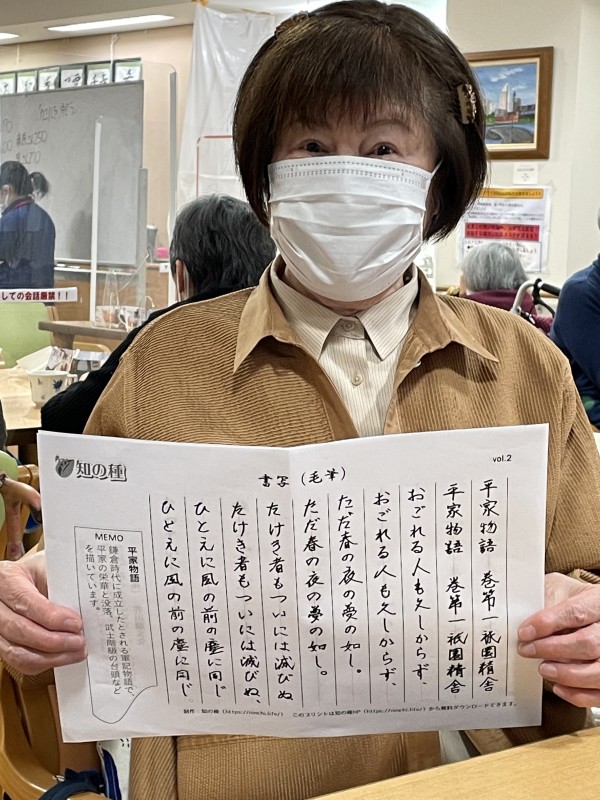 知の種
書写(毛筆)
vol.2
平家物語 巻第一 祇園精舎
平家物語 巻第一 祇園精舎
おごれる人も久しからず、
おごれる人も久しからず、
ただ春の夜の夢の如し。
ただ春の夜の夢の如し。
たけき者もついには滅びぬ
たけき者もついには滅びぬ、
ひとえに風の前の塵に同じ
ひとえに風の前の塵に同じ
MEMO
平家物語
鎌倉時代に成立したとされる軍記物語で、
平家の栄華と没落、武士階級の台頭など
を描いています。
制作 知の種(https://ninchi.life/) このプリントは知の種HP(https://ninchi.life/)から無料ダウンロードできます。
しての会話厳禁!!